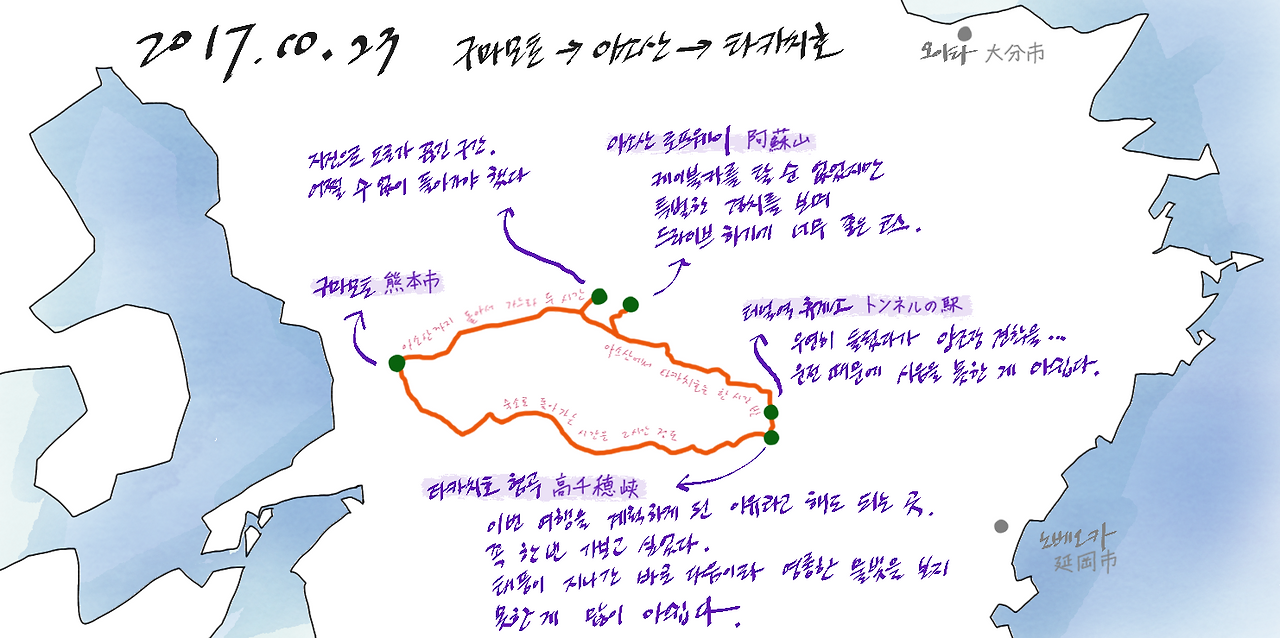 2017.10.23 구마모토 → 아소산 → 타카치호
오이타 大分市
지진으로 도로가 끊긴 구간.
어쩔 수 없이 돌아가야 했다
아소산 로프웨이 阿蘇山
케이블카를 탈 순 없었지만
특별한 경치를 보며
드라이브 하기에 너무 좋은 코스.
구마모토 熊本市
아소산까지 돌아서 가느라 두 시간
아소산에서 타카치호는 한 시간 반
터널역 휴게소 トンネルの駅
우연히 들렀다가 양조장 견학을...
운전 때문에 시음을 못한 게 아쉽다.
숙소로 돌아가는
시간은 2시간 정도
타카치호 협곡 高千穂峡
이번 여행을 계획하게 된 이유라고 해도 되는 곳.
꼭 한번 가보고 싶었다.
태풍이 지나간 바로 다음이라 영롱한 물빛을 보지
못한 게 많이 아쉽다.
노베오카
延岡市